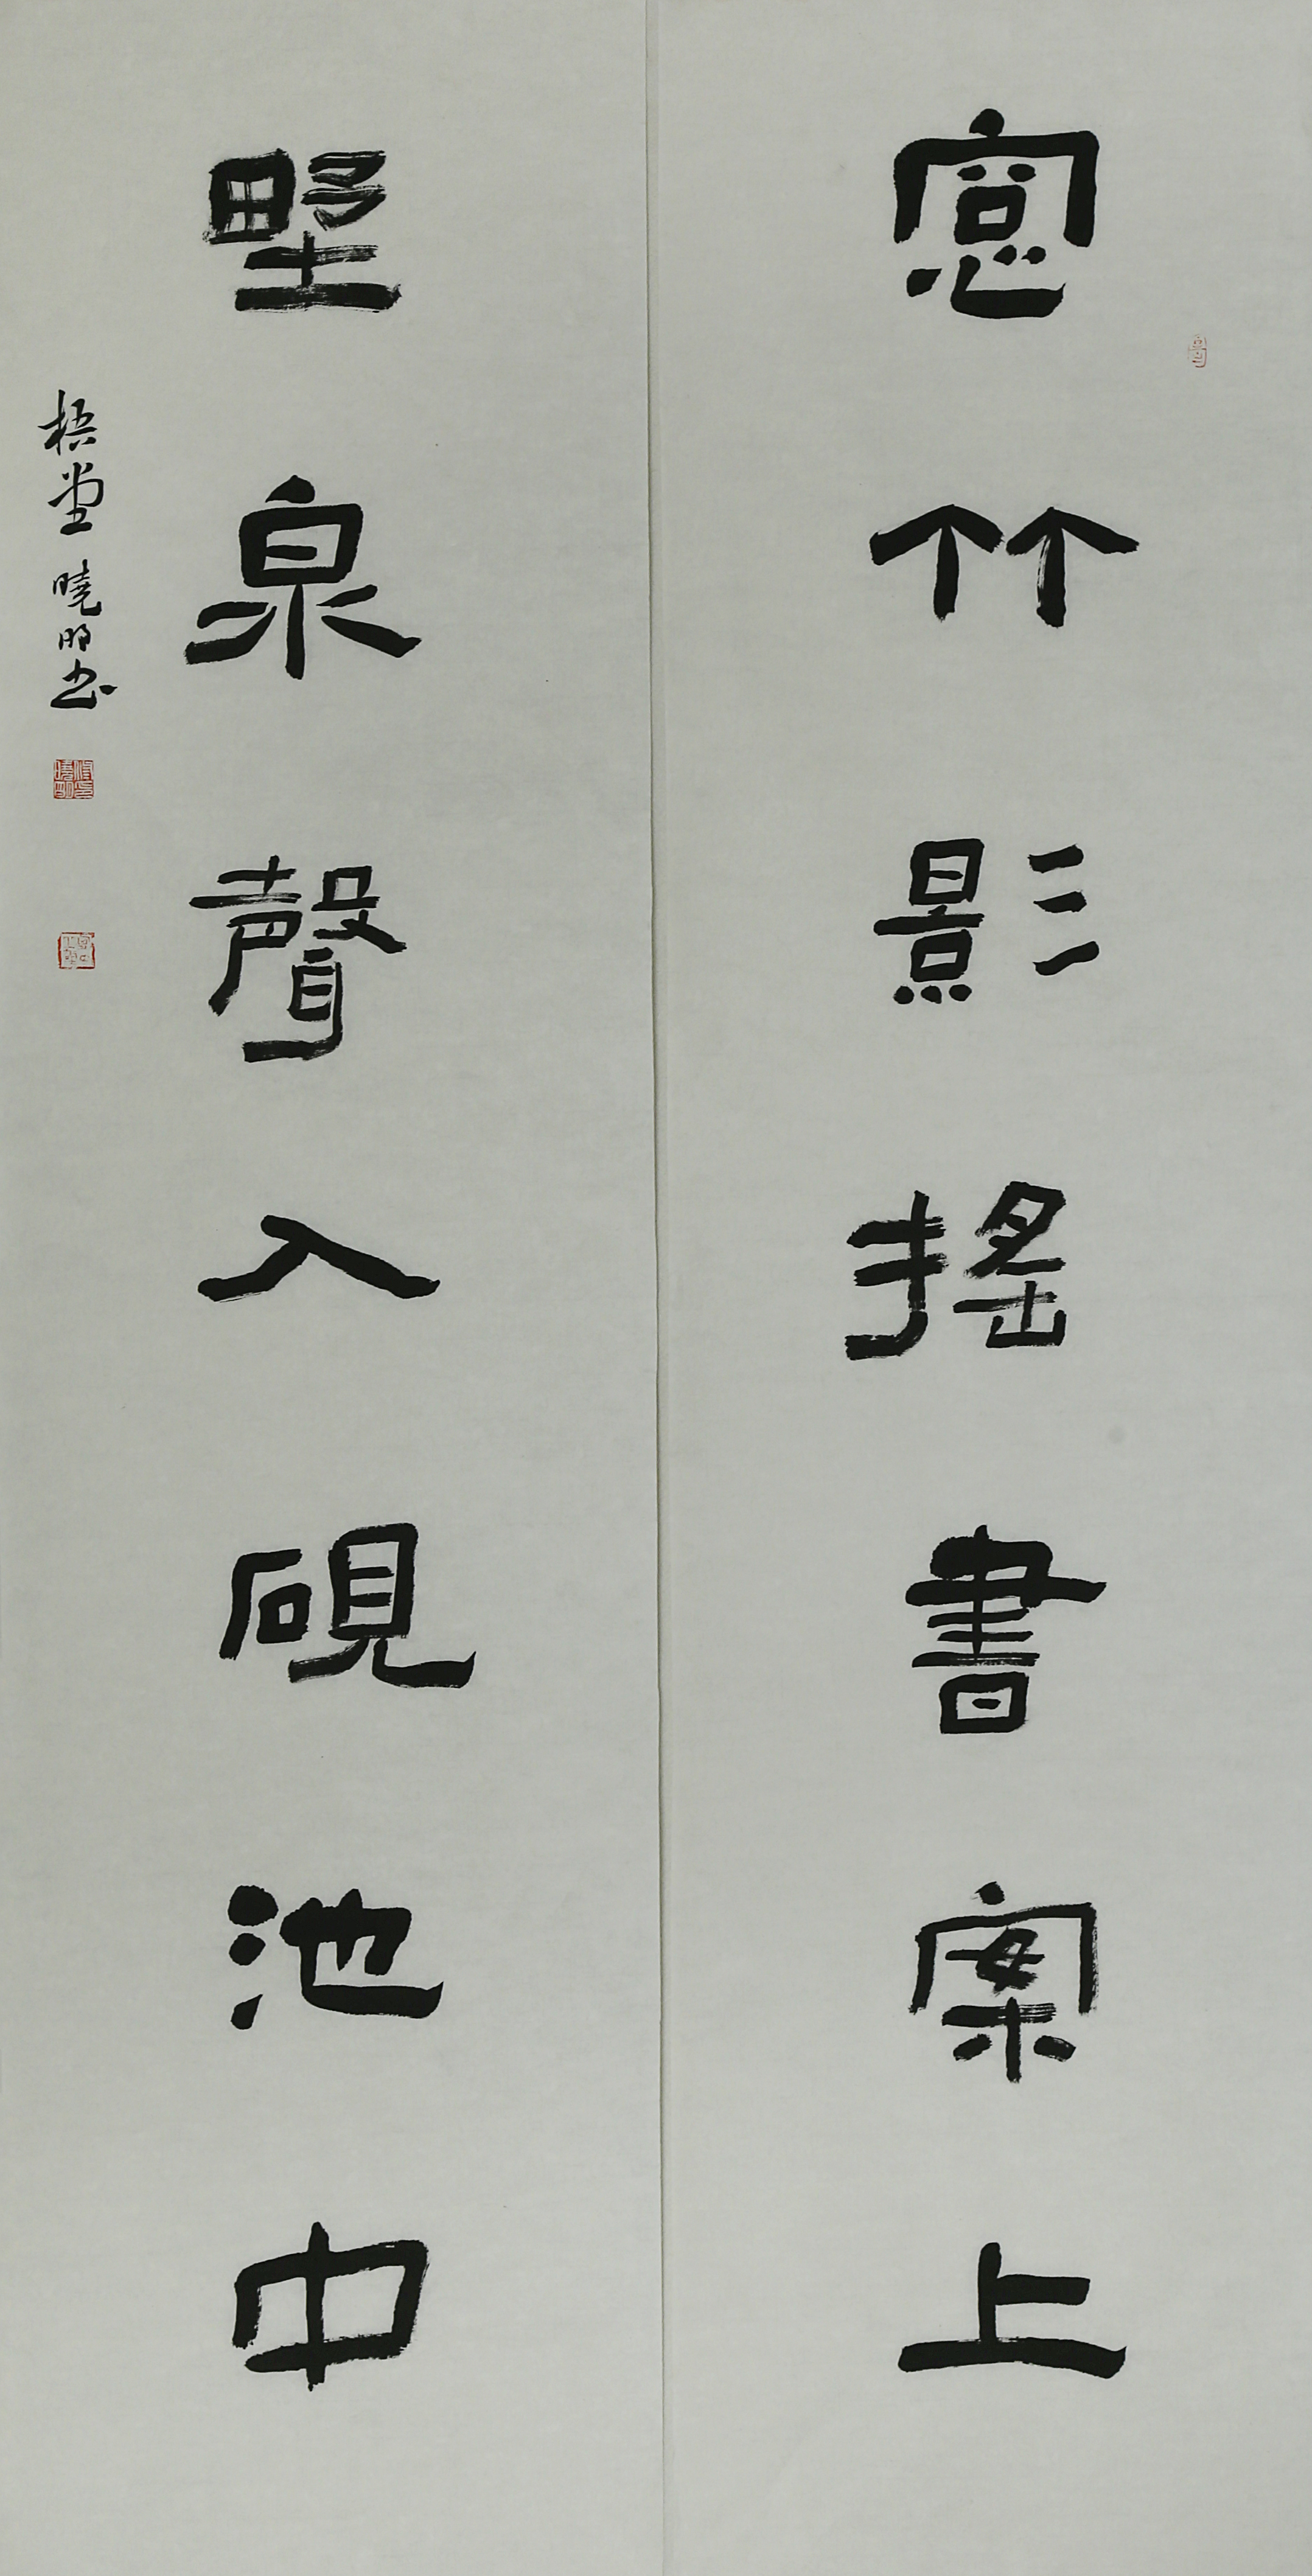 窓竹影搖書案上
野泉聲入硯池中
梧堂 曉明书